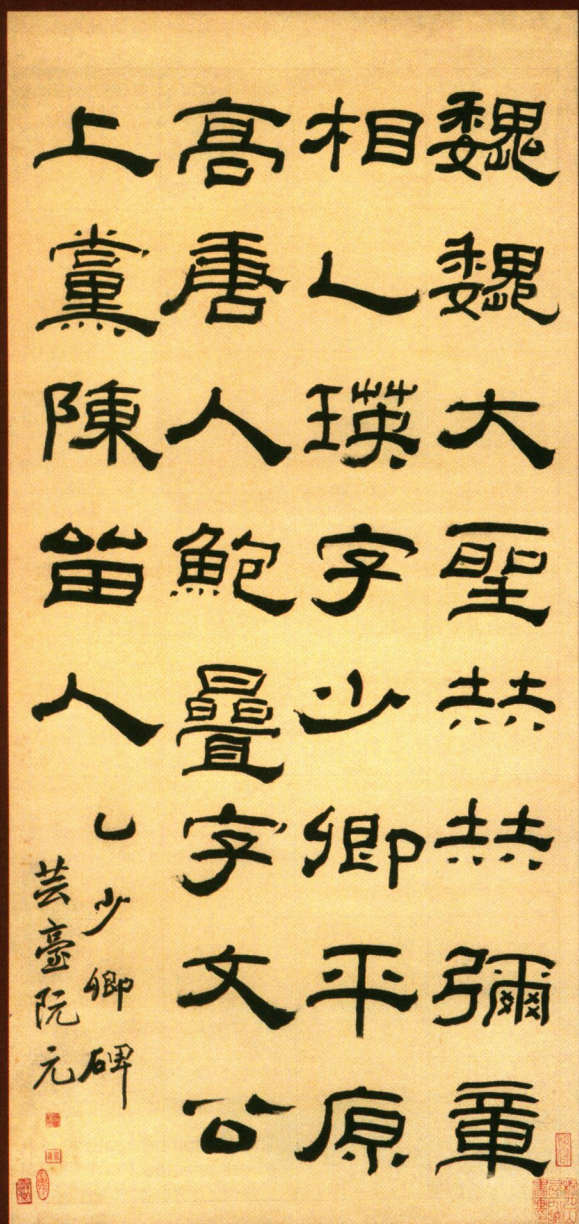 魏魏大聖赫赫彌章
相乙瑛字少卿平原
高唐人鮑疊字文公
上黨陳留人
乙少卿碑
芸臺阮元